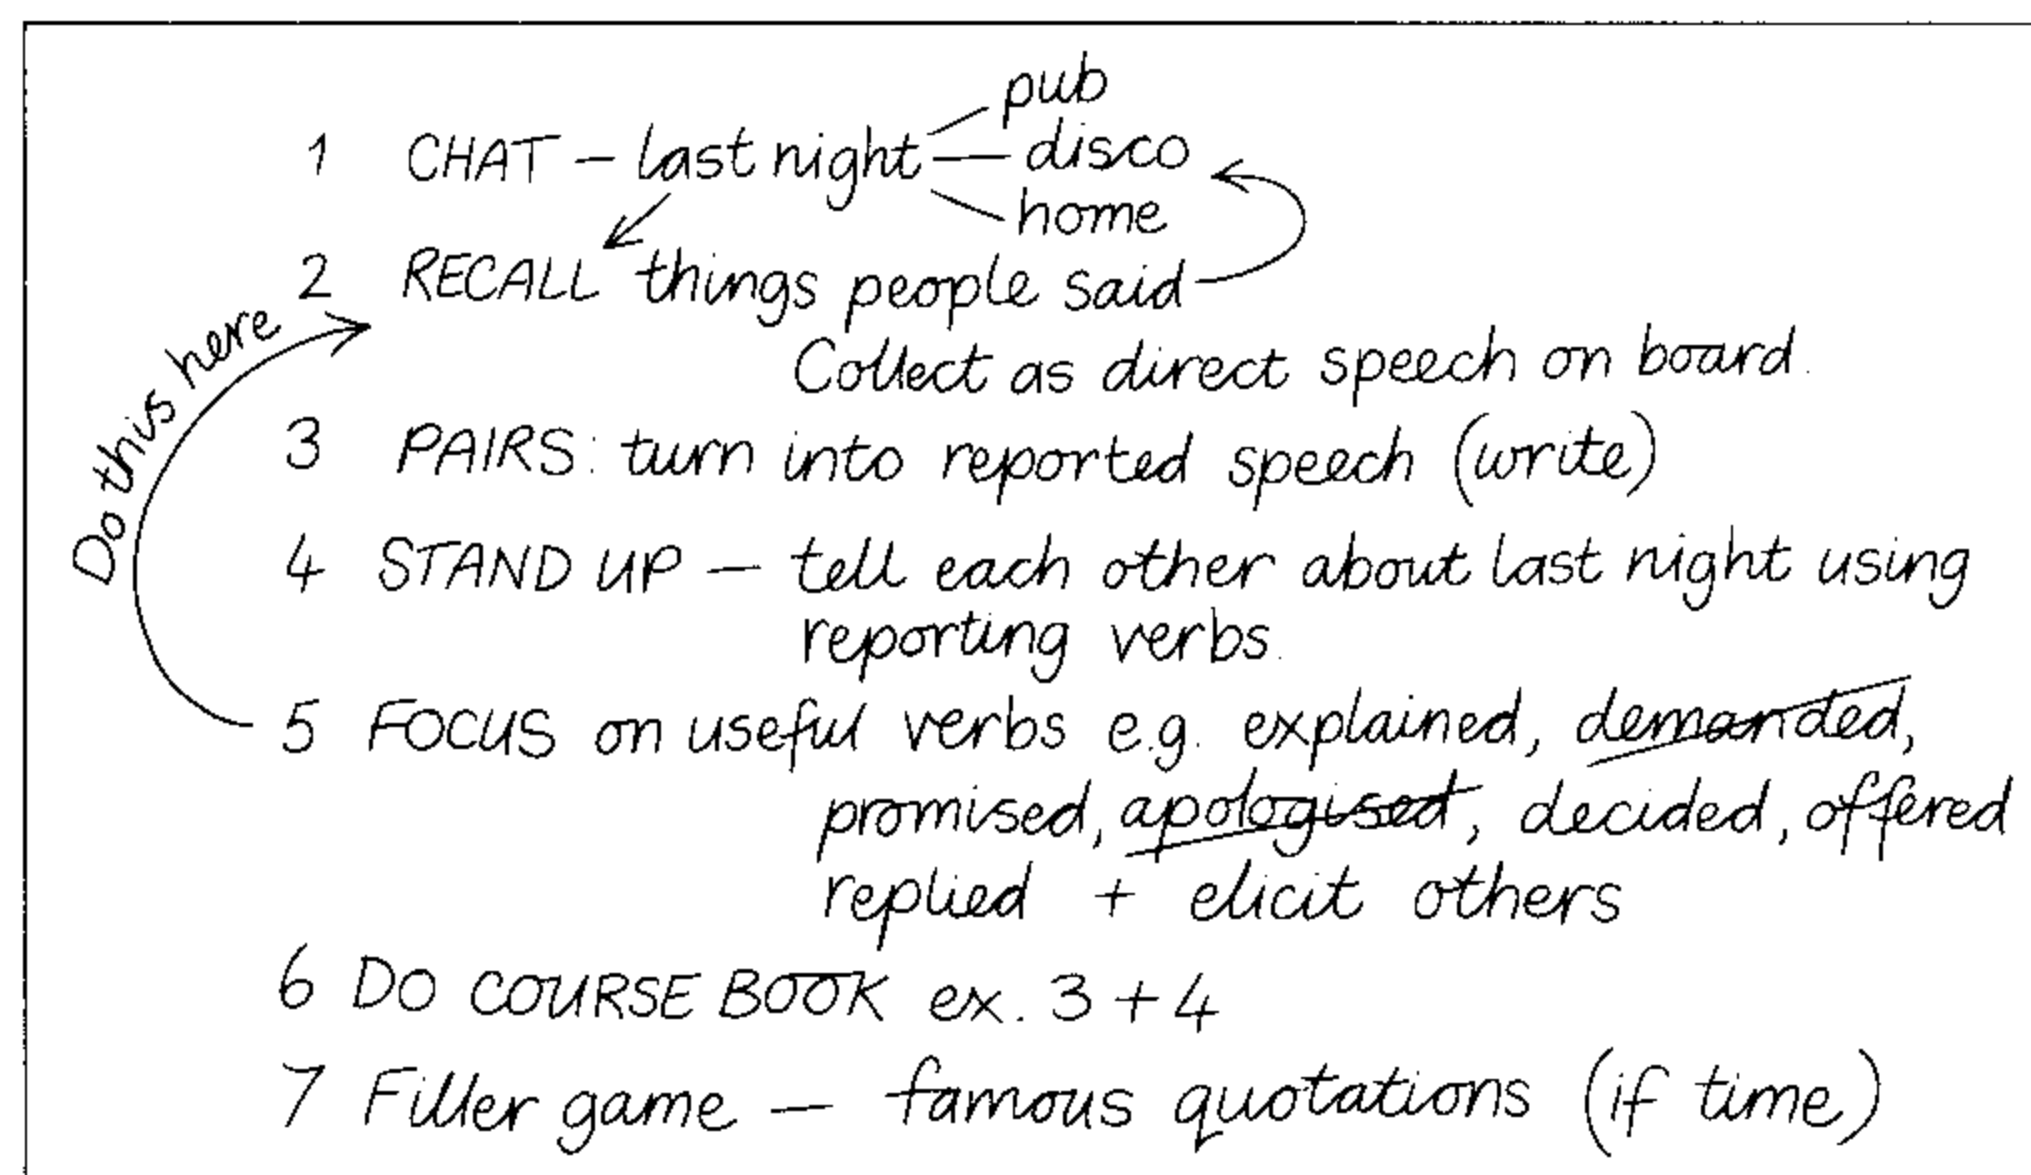 pub
1 CHAT – last night — disco
home
2 RECALL things people said
Do this here
Collect as direct speech on board.
3 PAIRS: turn into reported speech (write)
4 STAND UP – tell each other about last night using
reporting verbs.
5 FOCUS on useful verbs e.g. explained, demanded,
promised, apologised, decided, offered
replied + elicit others
6 DO COURSE BOOK ex. 3 + 4
7 Filler game – famous quotations (if time)